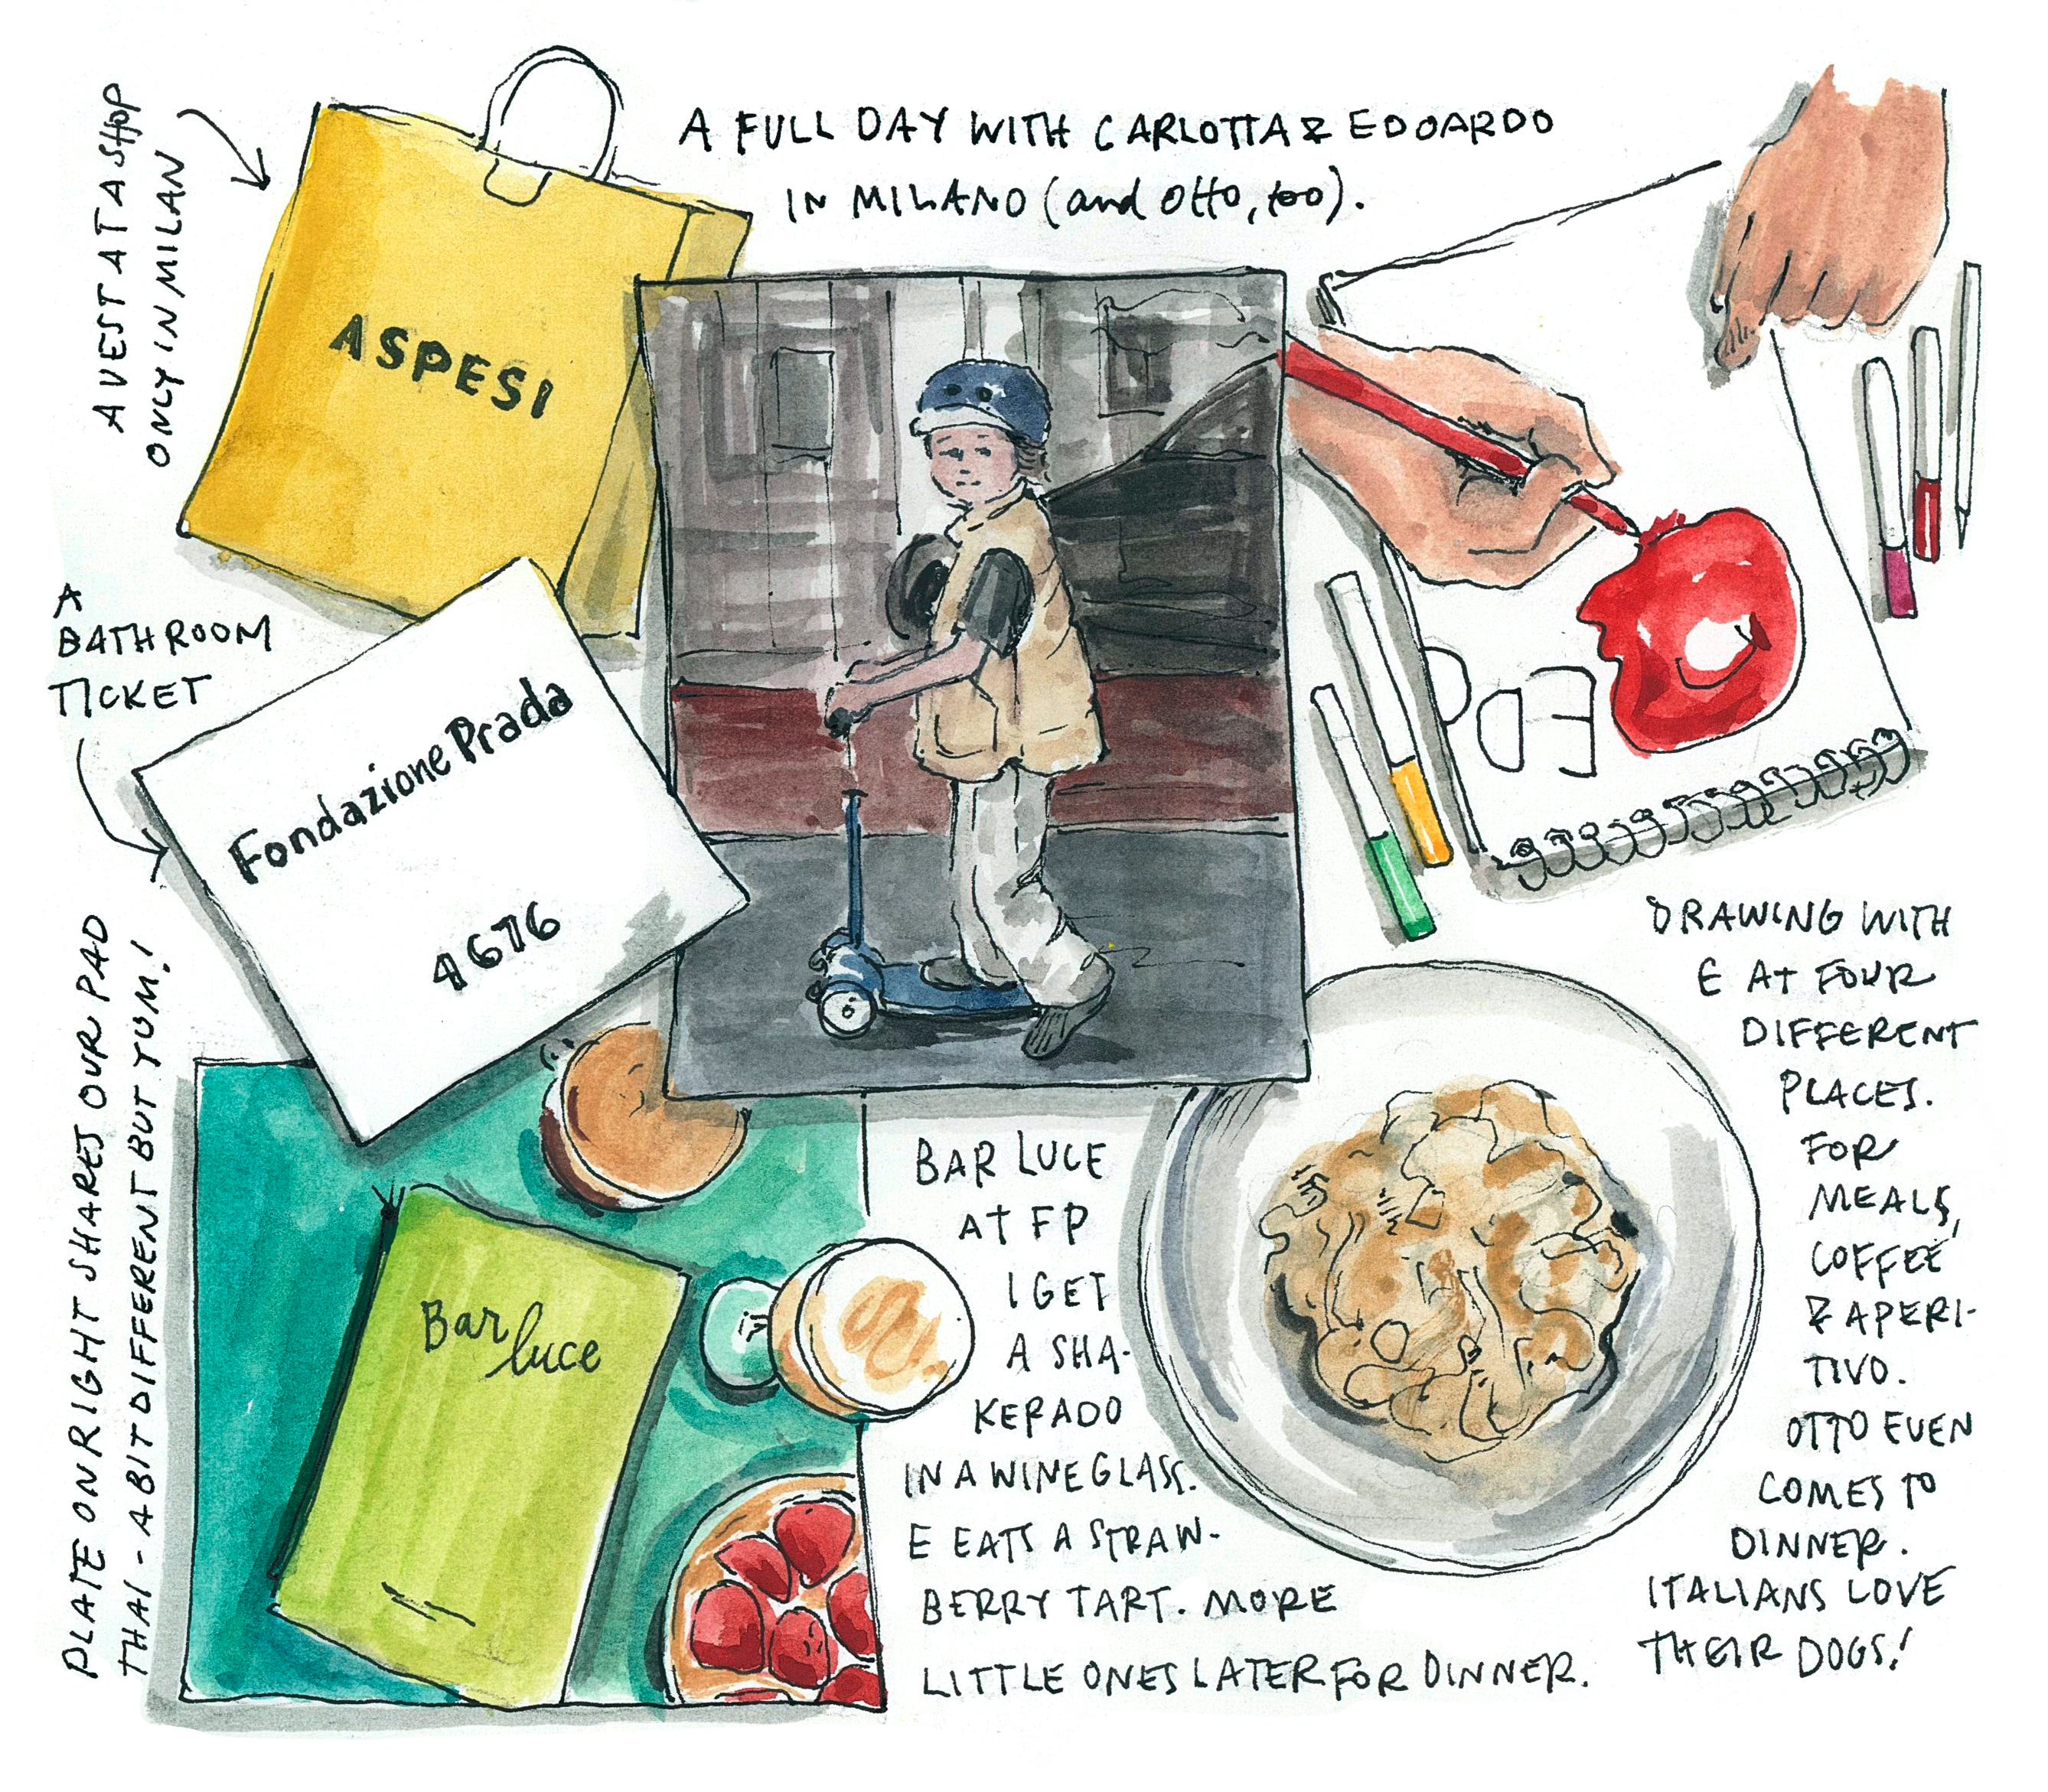 A FULL DAY WITH CARLOTTA & EDOARDO
IN MILANO (and Otto, too).
A VEST AT A SHOP
ONLY IN MILAN
ASPESI
A
BATHROOM
TICKET
Fondazione Prada
4676
EDO
DRAWING WITH
E AT FOUR
DIFFERENT
PLACES.
FOR
MEALS,
COFFEE
& APERI-
TIVO.
OTTO EVEN
COMES TO
DINNER.
ITALIANS LOVE
THEIR DOGS!
PLATE ON RIGHT SHARES OUR PAD
THAI - A BIT DIFFERENT BUT YUM!
Bar
luce
BAR LUCE
AT FP
I GET
A SHA-
KERADO
IN A WINE GLASS.
E EATS A STRAW-
BERRY TART. MORE
LITTLE ONES LATER FOR DINNER.